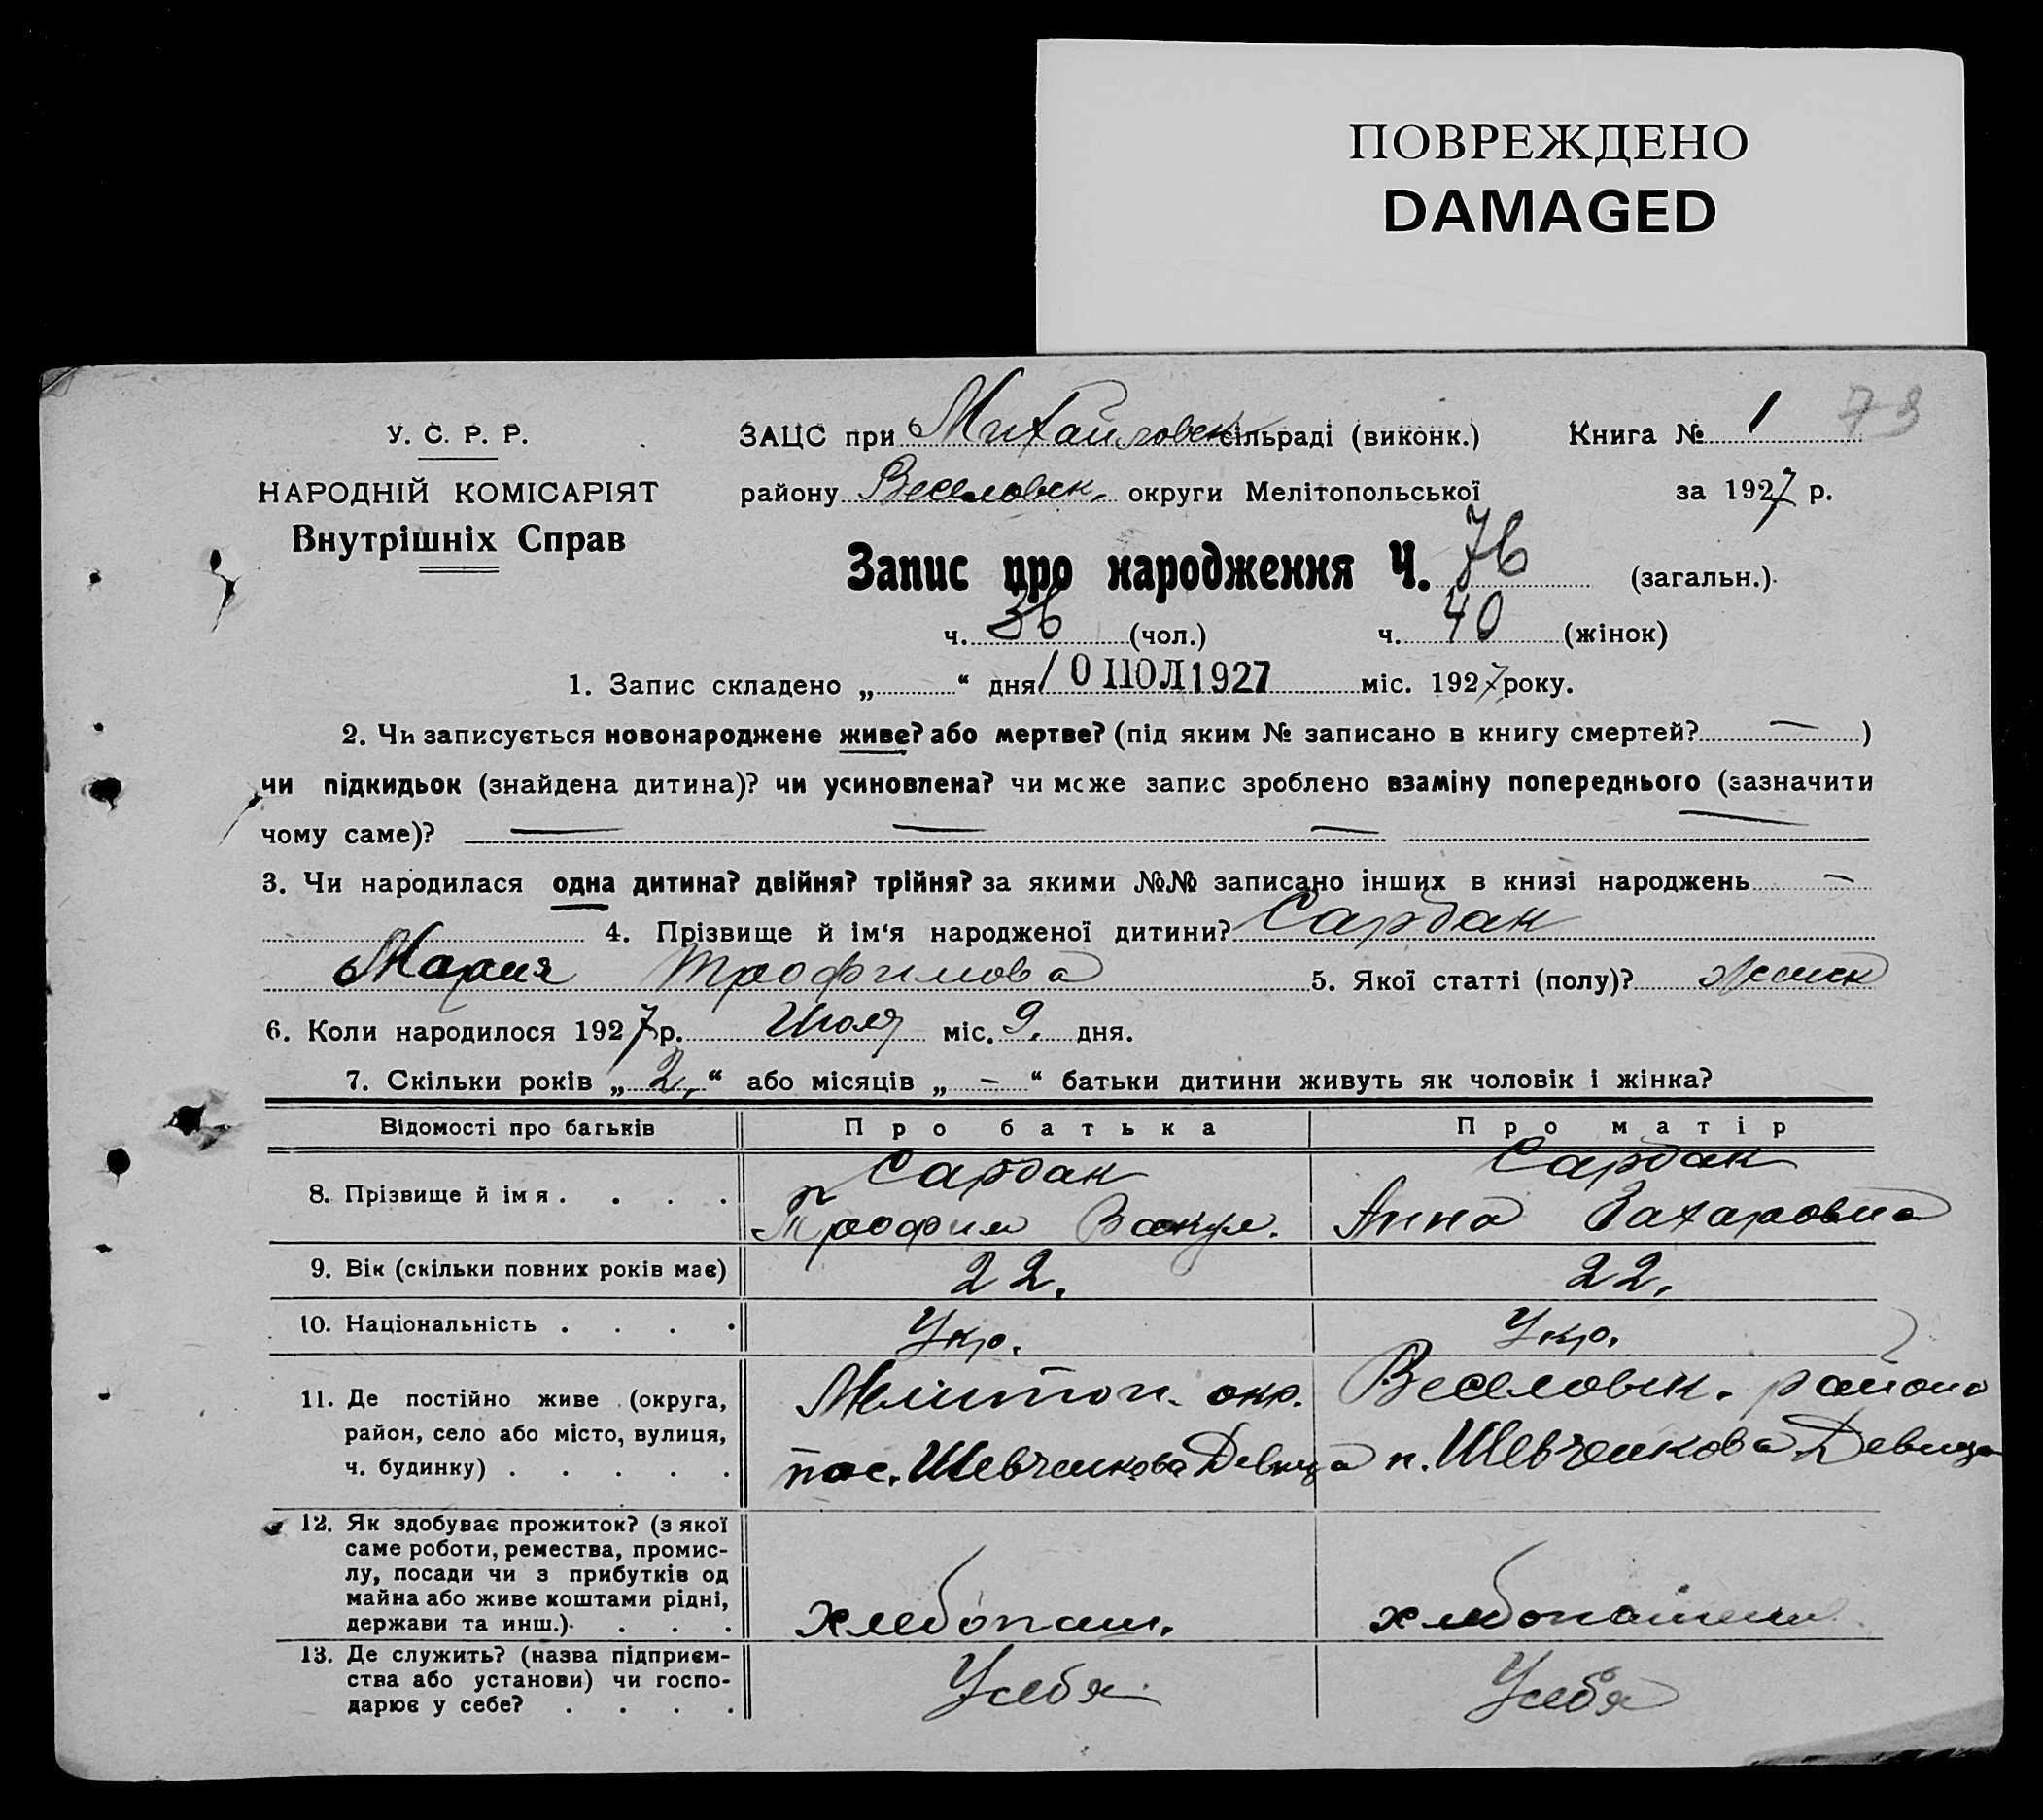 ПОВРЕЖДЕНО
DAMAGED
У. С. Р. Р.
НАРОДНІЙ КОМІСАРІЯТ
Внутрішніх Справ
ЗАЦС при Михайловск сільраді (виконк.) Книга № 1 73
району Веселовск. округи Мелітопольської за 1927 р.
Запис про народження Ч. 76 (загальн.)
ч. 36 (чол.) ч. 40 (жінок)
1. Запис складено „ “ дня 10 ІЮЛ 1927 міс. 1927 року.
2. Чи записується новонароджене живе? або мертве? (під яким № записано в книгу смертей? — )
чи підкидьок (знайдена дитина)? чи усиновлена? чи може запис зроблено взаміну попереднього (зазначити
чому саме)? — — — —
3. Чи народилася одна дитина? двійня? трійня? за якими №№ записано інших в книзі народжень —
4. Прізвище й ім‘я народженої дитини? Сардак
Мария Трофимова 5. Якої статті (полу)? женск
6. Коли народилося 1927 р. Июля міс. 9. дня.
7. Скільки років „ 2, “ або місяців „ – “ батьки дитини живуть як чоловік і жінка?
Відомості про батьків Про батька Про матір
8. Прізвище й імя . . . . Сардак Сардак
Трофим Вакул. Анна Захаровна
9. Вік (скільки повних років має) 22. 22.
10. Національність . . . . Укр. Укр.
11. Де постійно живе (округа, Мелитоп. окр. Веселовск. района
район, село або місто, вулиця, пос. Шевченкова Девица п. Шевченкова Девица
ч. будинку) . . . . .
12. Як здобуває прожиток? (з якої
саме роботи, ремества, промис-
лу, посади чи з прибутків од
майна або живе коштами рідні,
держави та инш.). . . . хлебопаш. хлебопашеш
13. Де служить? (назва підприєм-
ства або установи) чи госпо- У себя У себя
дарює у себе? . . . .